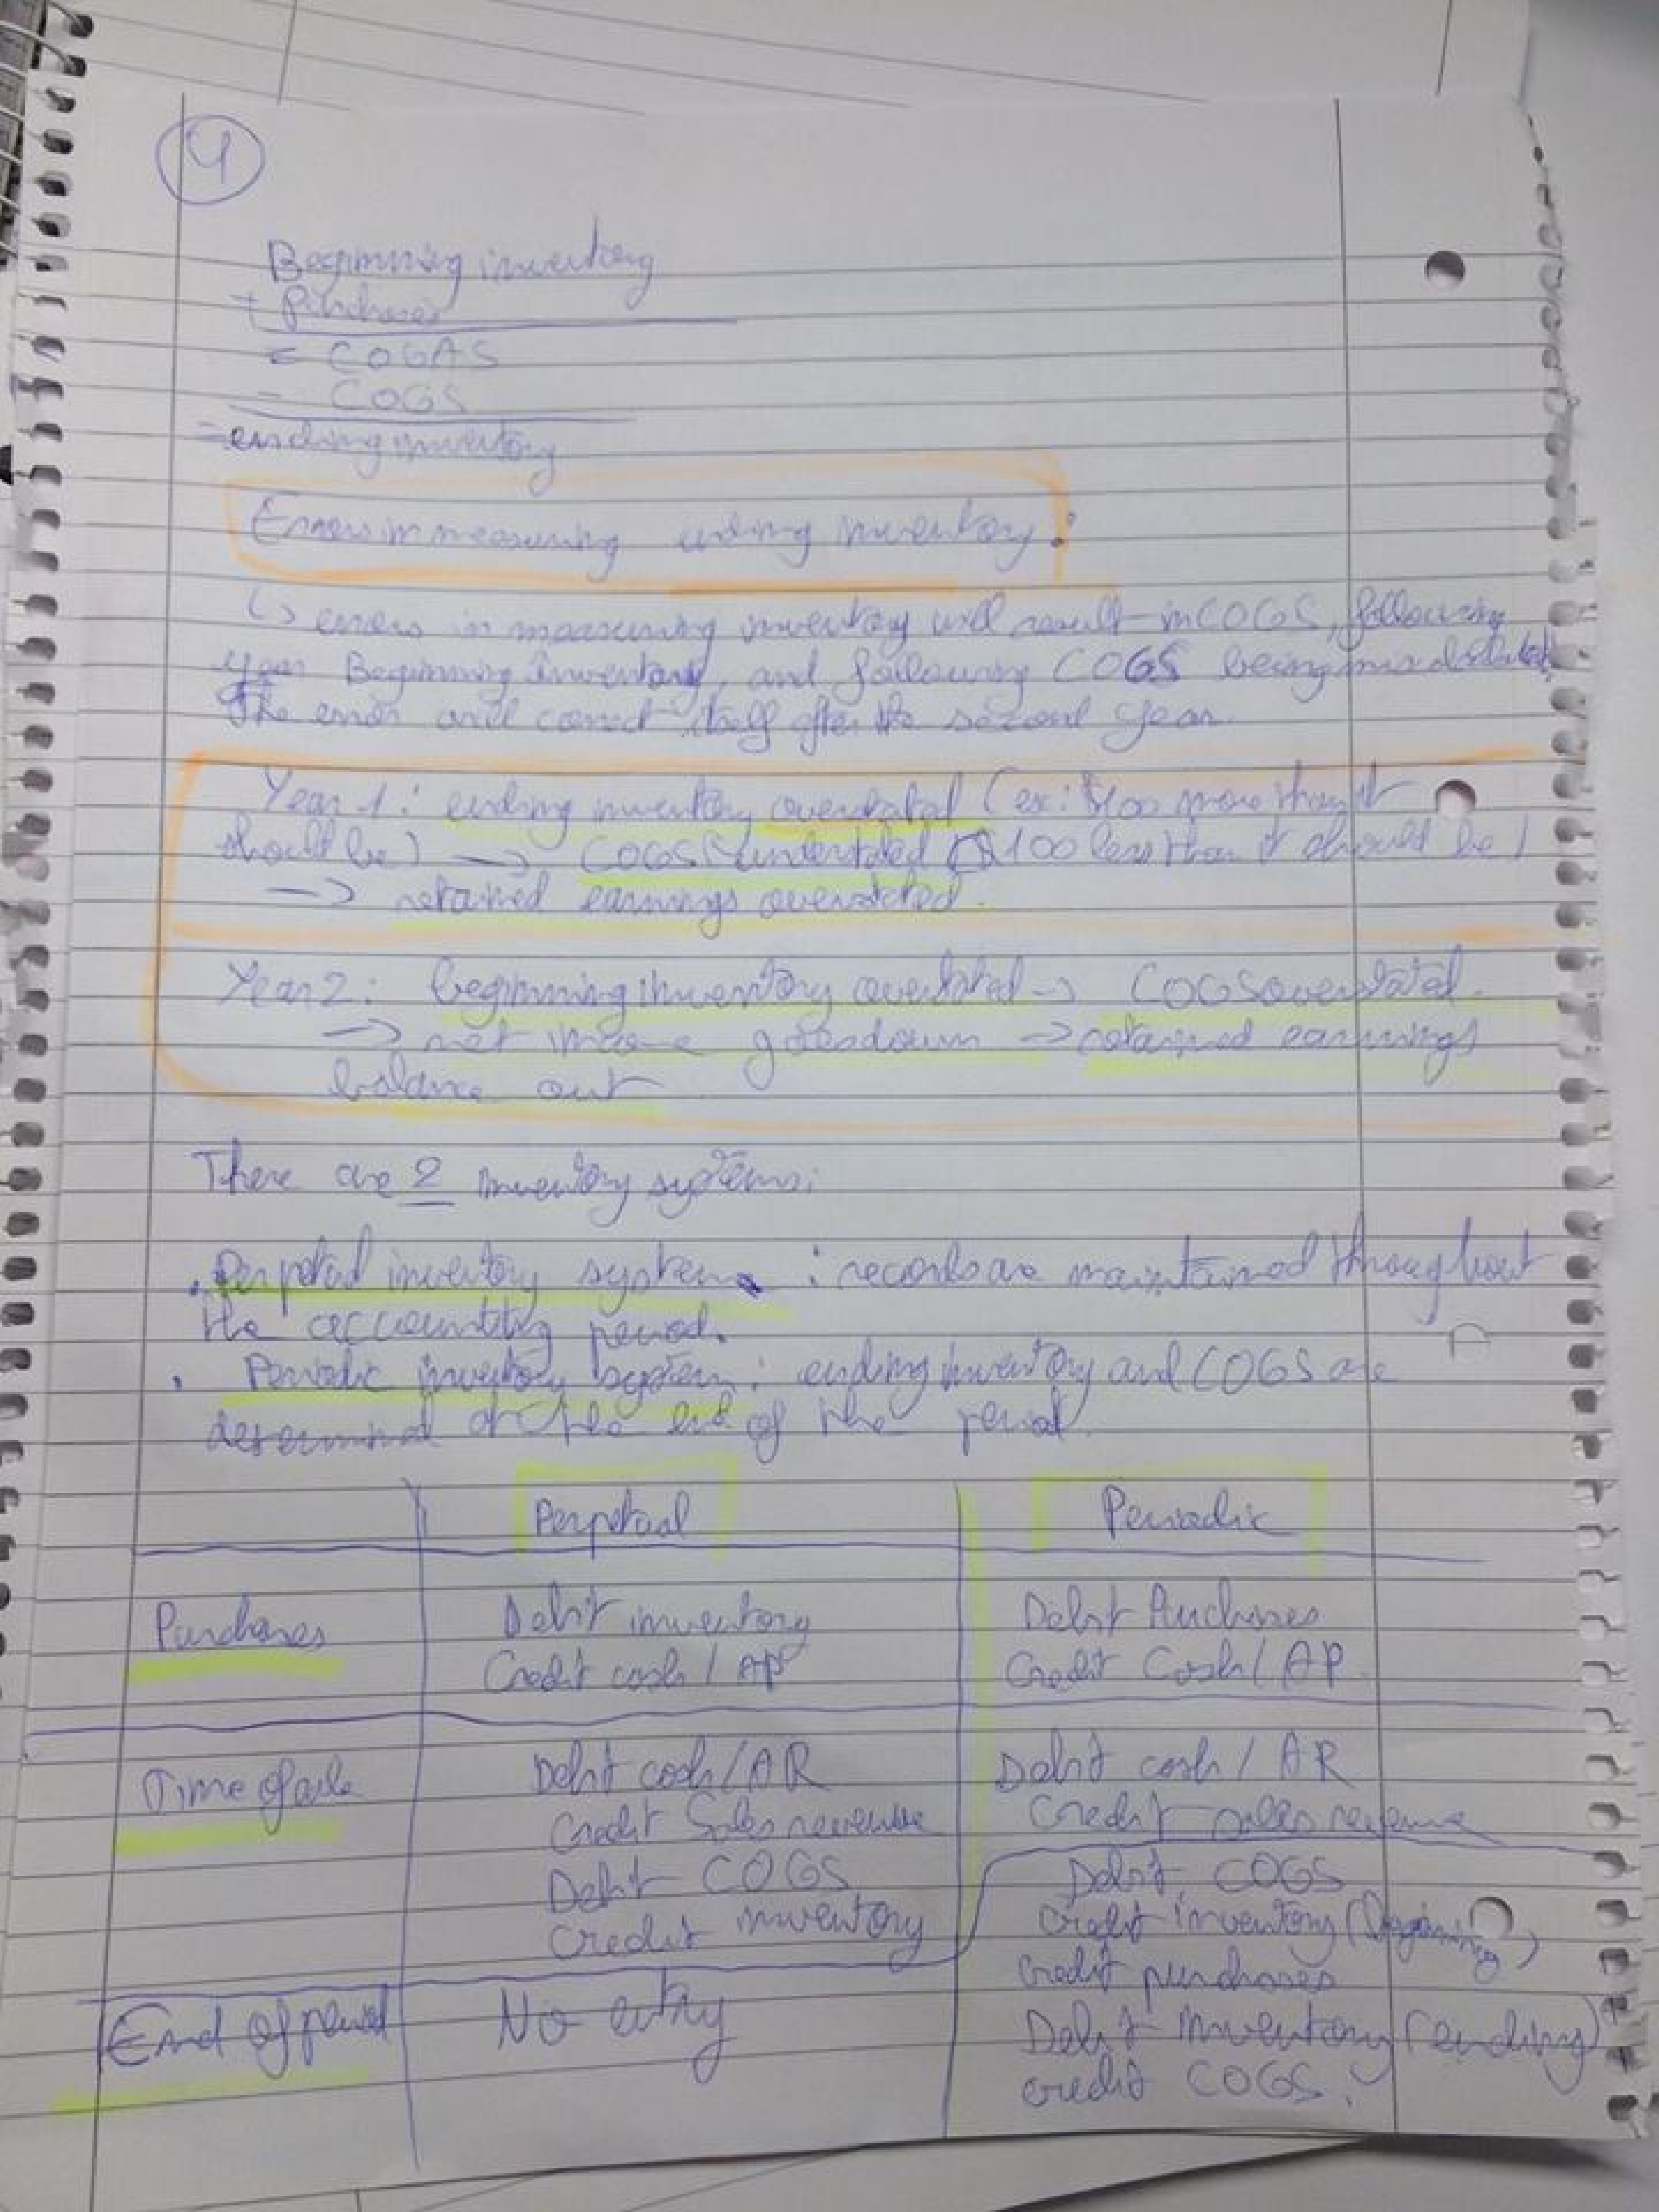 4
Beginning inventory
+ Purchases
= COGAS
- COGS
= ending inventory
Errors in measuring ending inventory :
↳ errors in measuring inventory will result in COGS, following
year Beginning Inventory, and following COGS being misstated.
The error will correct itself after the second year.
Year 1 : ending inventory overstated (ex: $100 more than it
should be) → COGS understated ($100 less than it should be)
→ retained earnings overstated.
Year 2 : beginning inventory overstated → COGS overstated.
→ net income goes down → retained earnings
balance out
There are 2 inventory systems:
. Perpetual inventory system : records are maintained throughout
the accounting period.
. Periodic inventory system : ending inventory and COGS are
determined at the end of the period.
Perpetual Periodic
Purchases Debit inventory Debit Purchases
Credit cash / AP Credit Cash / AP
Time of sale Debit cash / AR Debit cash / AR
Credit Sales revenue Credit sales revenue
Debit COGS Debit COGS
Credit inventory Credit inventory (beginning)
Credit purchases
End of period No entry Debit inventory (ending)
credit COGS.